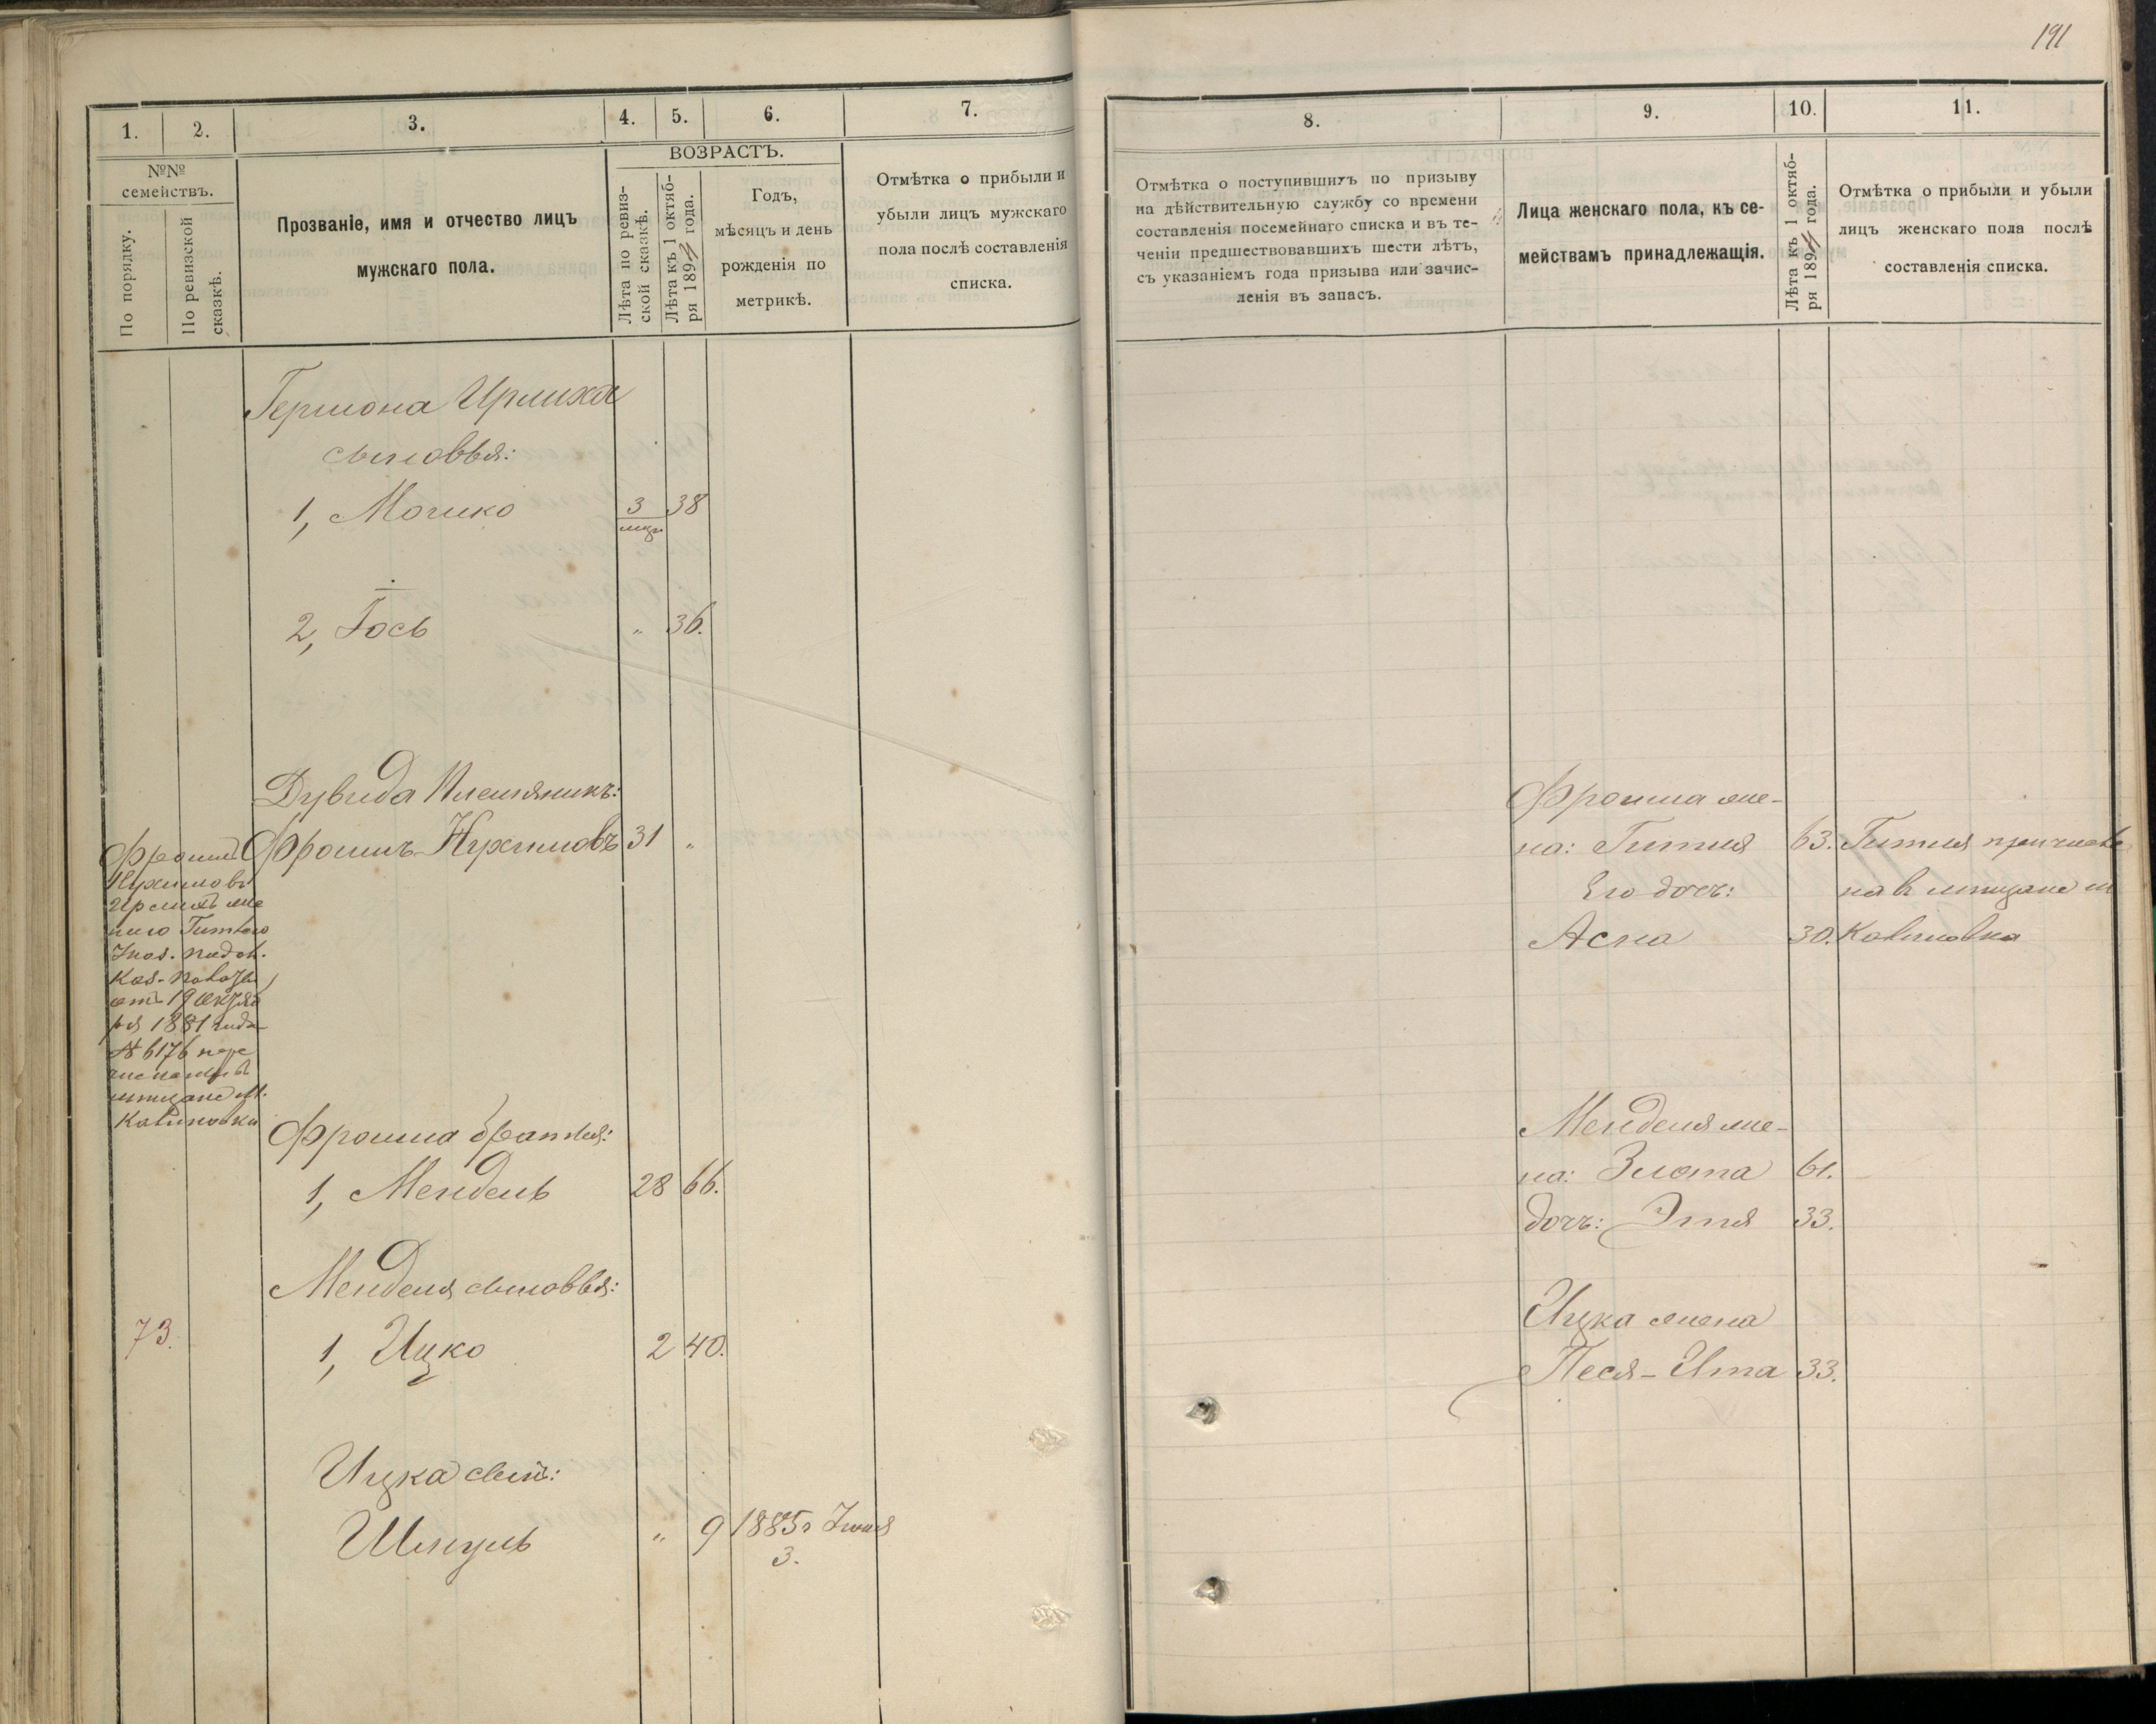 191
1.
2.
3.
4.
5.
6.
7.
№№
семействъ.
По порядку.
По ревизской
сказкѣ.
Прозваніе, имя и отчество лицъ
мужскаго пола.
ВОЗРАСТЪ.
Лѣта по ревиз-
ской сказкѣ.
Лѣта къ 1 октяб-
ря 189 года.
Годъ,
мѣсяцъ и день
рожденія по
метрикѣ.
Отмѣтка о прибыли и
убыли лицъ мужскаго
пола послѣ составленія
списка.
Гершона Ирлиха
сыновья:
1, Мошко 3 38
мцъ
2, Іось " 36.
Дувида Племянникъ:
Фроимъ Нухимовъ 31 "
Фроимъ
Нухимовъ
Ирлихъ
Каз.
отъ 19
1881 года
№ 6176 пере
численъ въ
мѣщане м.
Калиновки
Фроима братья:
1, Мендель 28 66.
Менделя сыновья:
73.
1, Ицко 2 40.
Ицка сынъ:
Шмуль " 9 1885 г Іюля
3.
8.
9.
10.
11.
Отмѣтка о поступившихъ по призыву
на дѣйствительную службу со времени
составленія посемейнаго списка и въ те-
ченіи предшествовавшихъ шести лѣтъ,
съ указаніемъ года призыва или зачис-
ленія въ запасъ.
Лица женскаго пола, къ се-
мействамъ принадлежащія.
Лѣта къ 1 октяб-
ря 189 года.
Отмѣтка о прибыли и убыли
лицъ женскаго пола послѣ
составленія списка.
Фроима же-
на: Гитля 63. Гитля причисле
Его дочь: на въ мѣщане м
Асна 30. Калиновка
Менделя же-
на: Злота 61.
дочь: Этя 33.
Ицка жена
Песя-Ита 33.